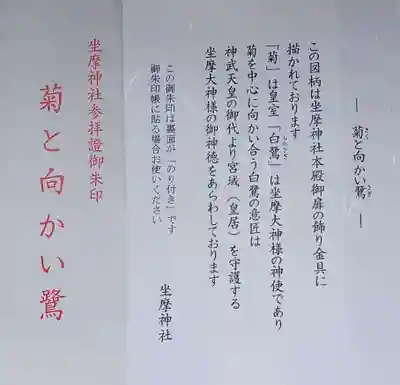 ― 菊と向かい鷺 ―
きく
さぎ
この図柄は坐摩神社本殿御扉の飾り金具に
描かれております
「菊」は皇室「白鷺」は坐摩大神様の神使であり
しらさぎ
菊を中心に向かい合う白鷺の意匠は
神武天皇の御代より宮城（皇居）を守護する
坐摩大神様の御神徳をあらわしております
坐摩神社
この御朱印は裏面が「のり付き」です
御朱印帳に貼る場合お使いください
坐摩神社参拝證御朱印
菊と向かい鷺